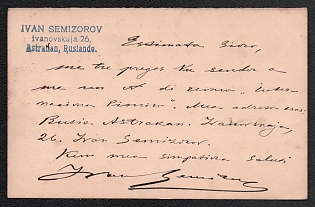 IVAN SEMIZOROV
Ivanovskaja 26,
Astraĥan, Ruslando.
Estimata Sinjoro,
me tre preĝas Vu sendor a
me un № di
Mea adreso esas:
Rusio. Astrakan. Ivanovskaja,
26. Ivan Semizorov.
Kun mea simpatioza saluti
Ivan Semizorov